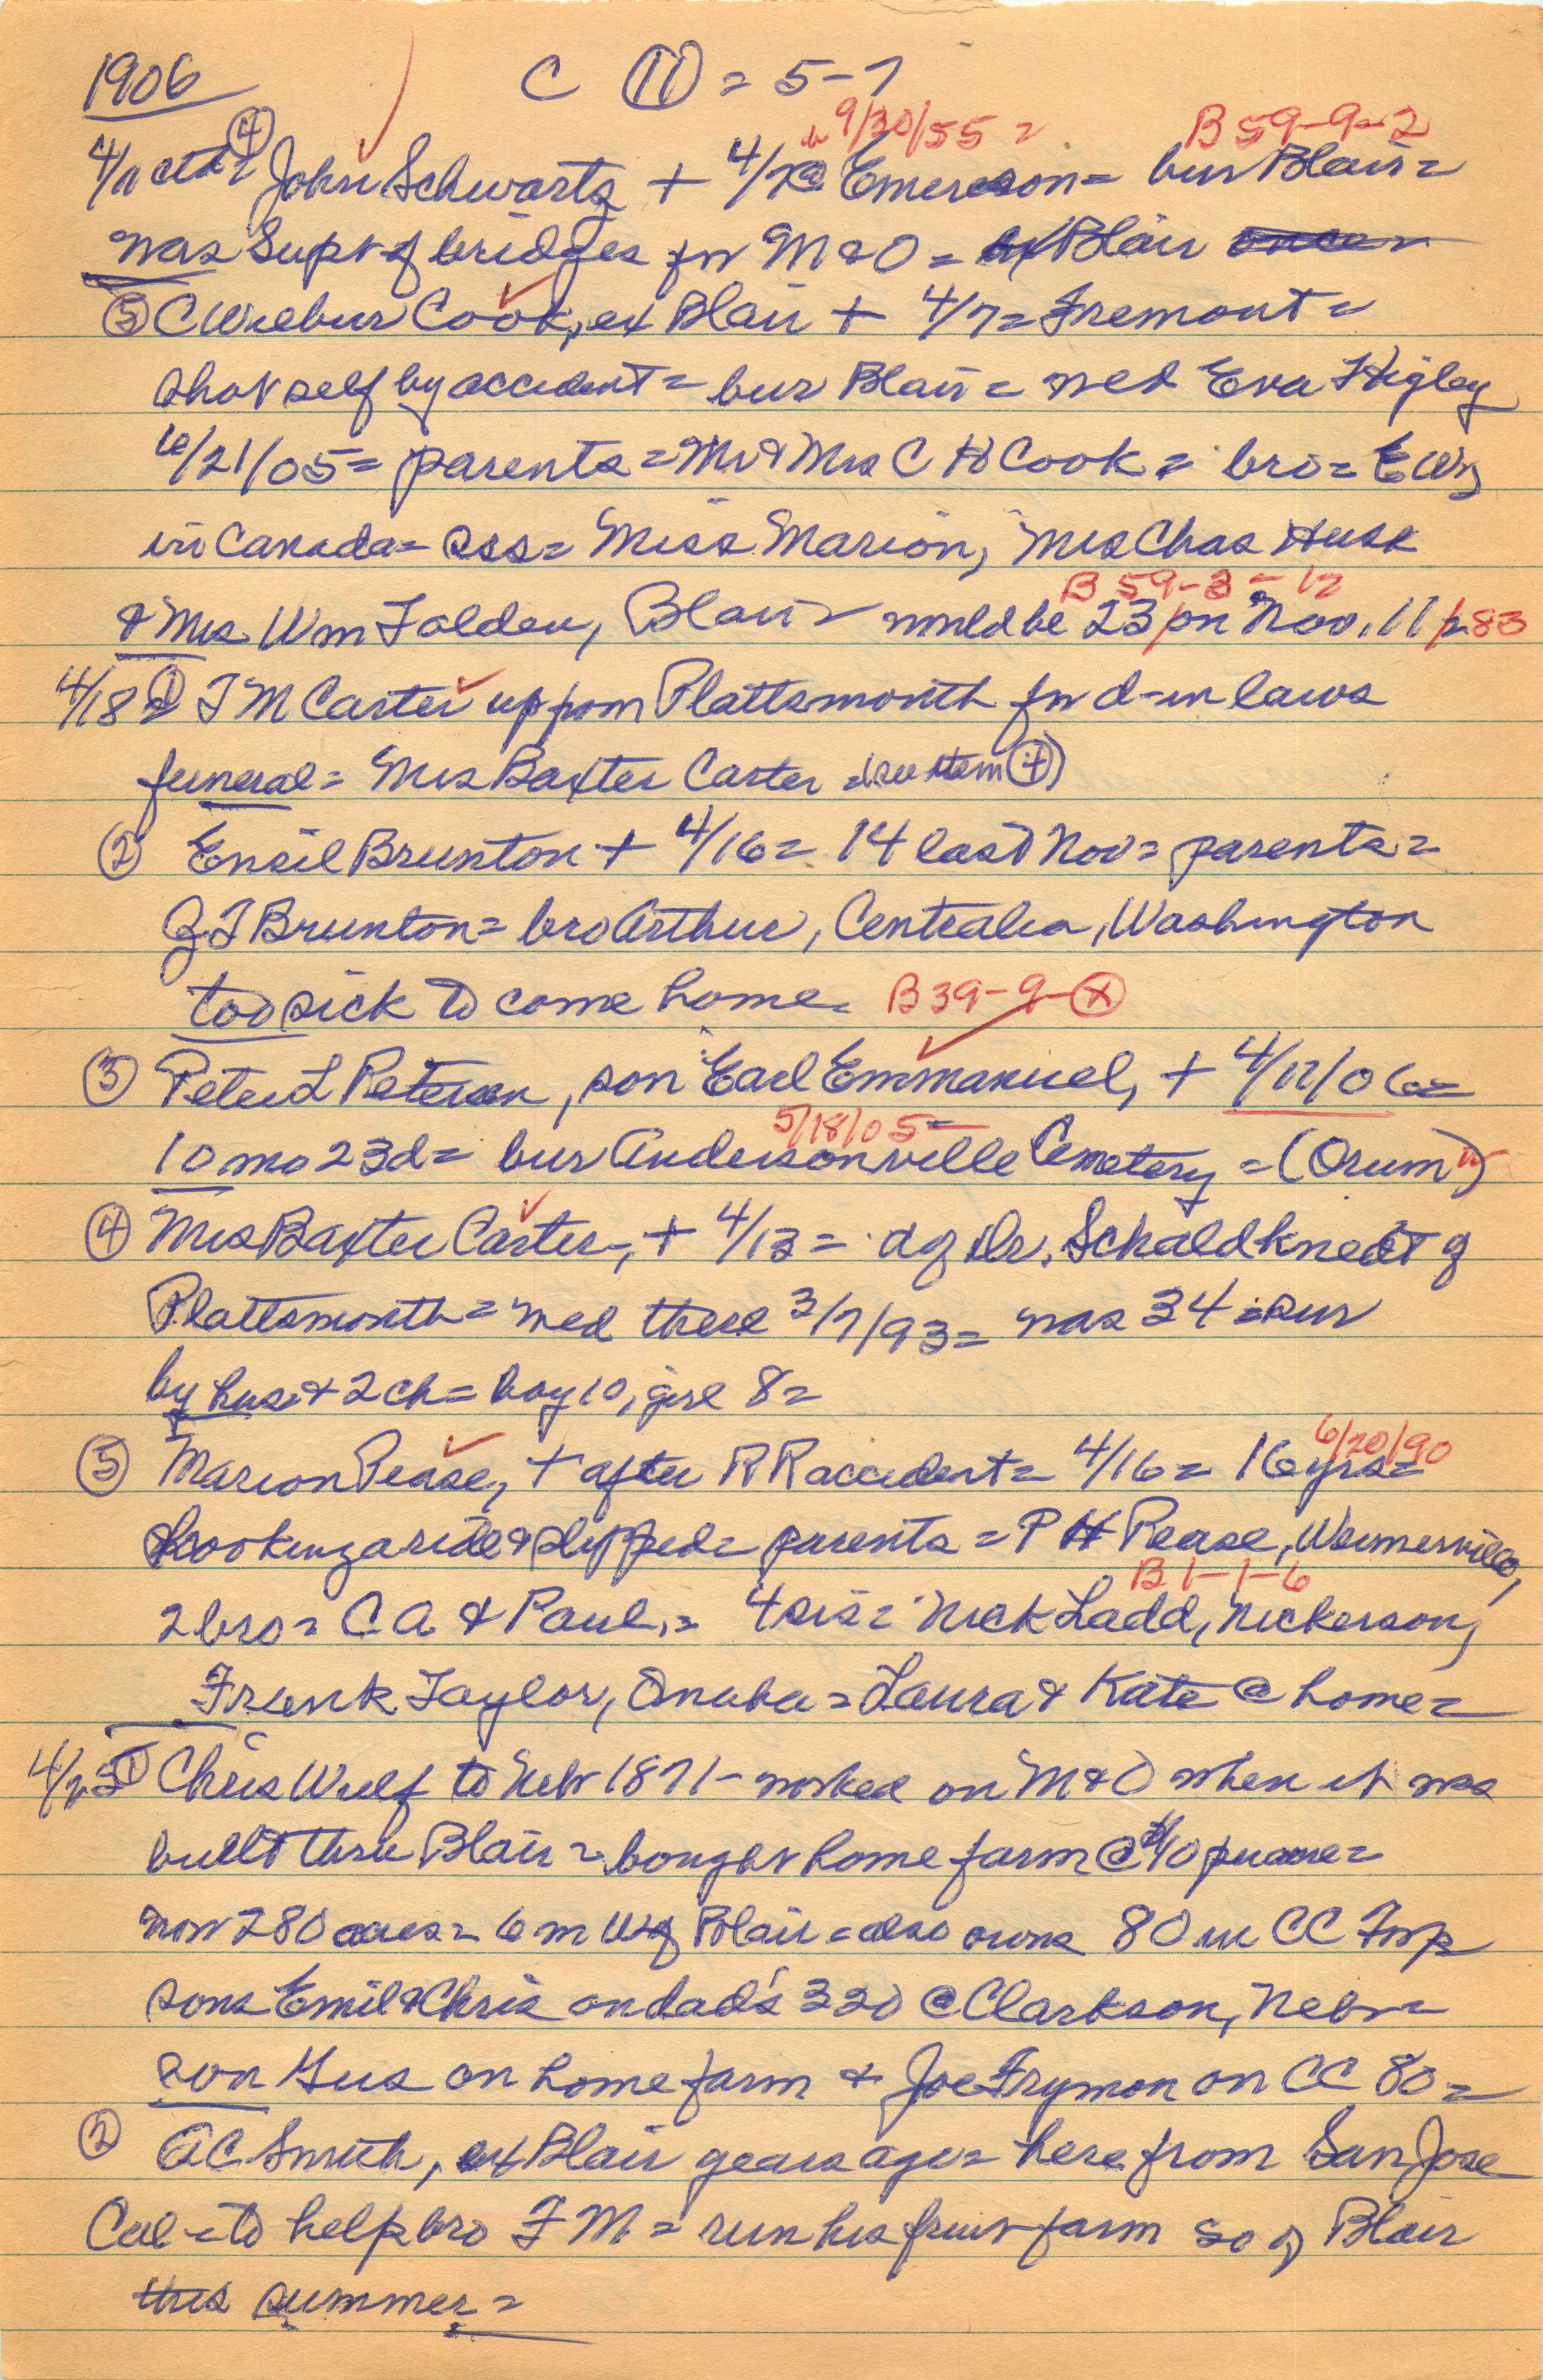 1906 C (11) = 5-7
b 9/30/55 = B 59-9-2
4/11 ctd = (4) John Schwartz + 4/7 @ Emerson = bur Blair =
was Supt of bridges for M & O = ex Blair
(5) C Wilbur Cook, ex Blair + 4/7 = Fremont =
shot self by accident = bur Blair = wed Eva Higley
10/21/05 = parents = Mr & Mrs C H Cook = bro = E W,
in Canada = sss = Miss Marion, Mrs Chas Husk
B 59-3-12
& Mrs Wm Falden, Blair = would be 23 on Nov. 11 /83
4/18 (1) T M Carter up from Plattsmouth for d-in laws
funeral = Mrs Baxter Carter = (see item (4))
(2) Ensil Brunton + 4/16 = 14 last Nov = parents =
G T Brunton = bro Arthur, Centralia, Washington
too sick to come home. B39-9-(X)
(3) Peter L Petersen, son Earl Emmanuel, + 4/11/06 =
5/18/05 =
10 mo 23d = bur Andersonville Cemetery = (Orum)
(4) Mrs Baxter Carter, + 4/13 = d of Dr. Schaldknedt of
Plattsmouth = wed there 3/7/93 = was 34 = sur
by hus & 2 ch = boy 10, girl 8 =
6/20/90
(5) Marion Pease, + after R R accident = 4/16 = 16 yrs =
Hooking a ride & slipped = parents = P H Pease, Weimersville,
B 1-1-6
2 bro = C A & Paul, = 4 sis = Nick Ladd, Nickerson,
Frank Taylor, Omaha = Laura & Kate @ home =
4/25 (1) Chris Wulf to Nebr 1871 - worked on M & O when it was
built thru Blair = bought home farm @ $10 per acre =
now 280 acres = 6 m W of Blair = also owns 80 in CC Twp
sons Emil & Chris on dad's 320 @ Clarkson, Nebr =
son Gus on home farm & Joe Frymon on CC 80 =
(2) AC Smith, ex Blair years ago = here from San Jose
Cal = to help bro F M = run his fruit farm so of Blair
this summer =